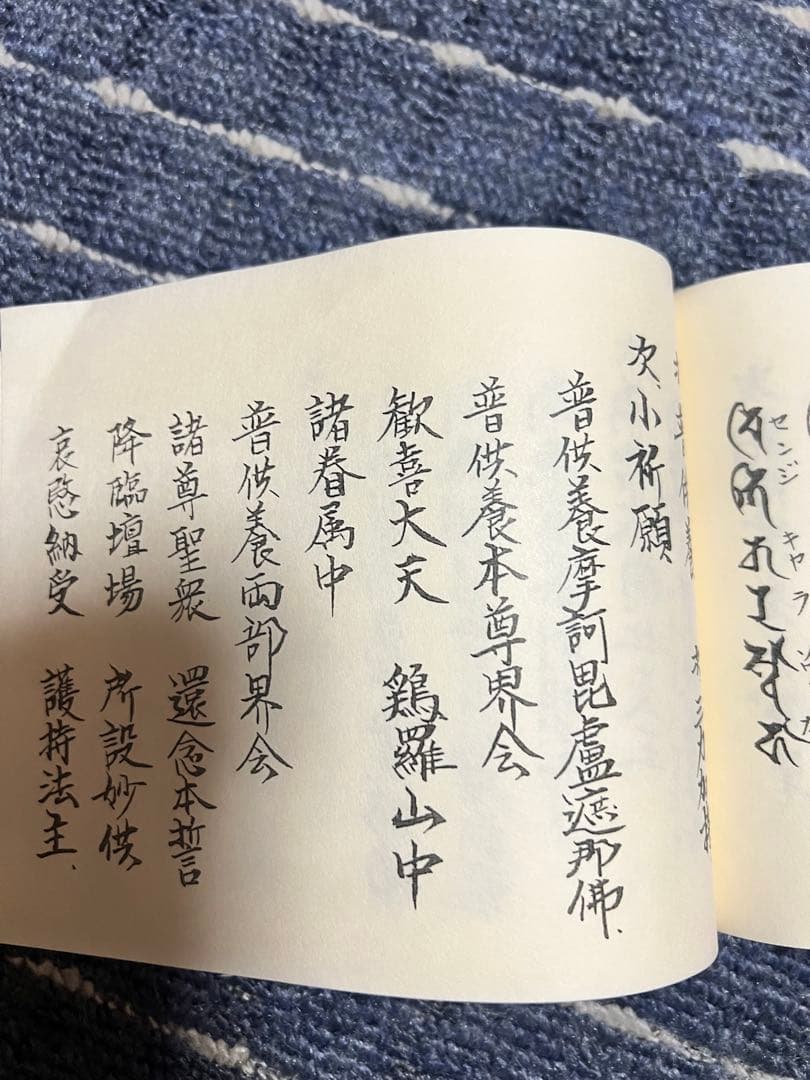 センジ キャラ
普供養 三力加持
次、小祈願
普供養摩訶毘盧遮那佛、
普供養本尊界会
歓喜大天 鶏羅山中
諸眷属中
普供養両部界会
諸尊聖衆 還念本誓
降臨壇場 所設妙供
哀愍納受 護持法主、